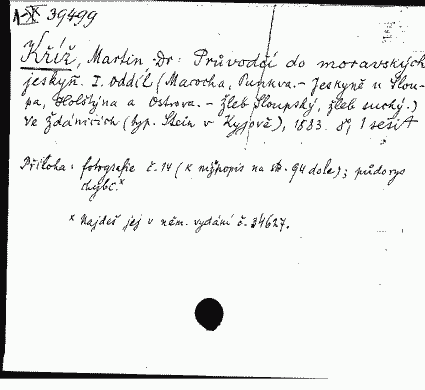 A-X 39499
Kříž, Martin Dr: Průvodčí do moravských
jeskyň. I. oddíl (Macocha, Punkva. - Jeskyně u Slou-
pa, Holštýna a Ostrova. - Žleb Sloupský, žleb suchý.)
Ve Ždánicích (typ. Stein v Kyjově), 1883. 8°, 1 sešit
Příloha: fotografie č. 14 (k níž popis na str. 94 dole); půdorys
chybí.x
x Najdeš jej v něm. vydání č. 34627.